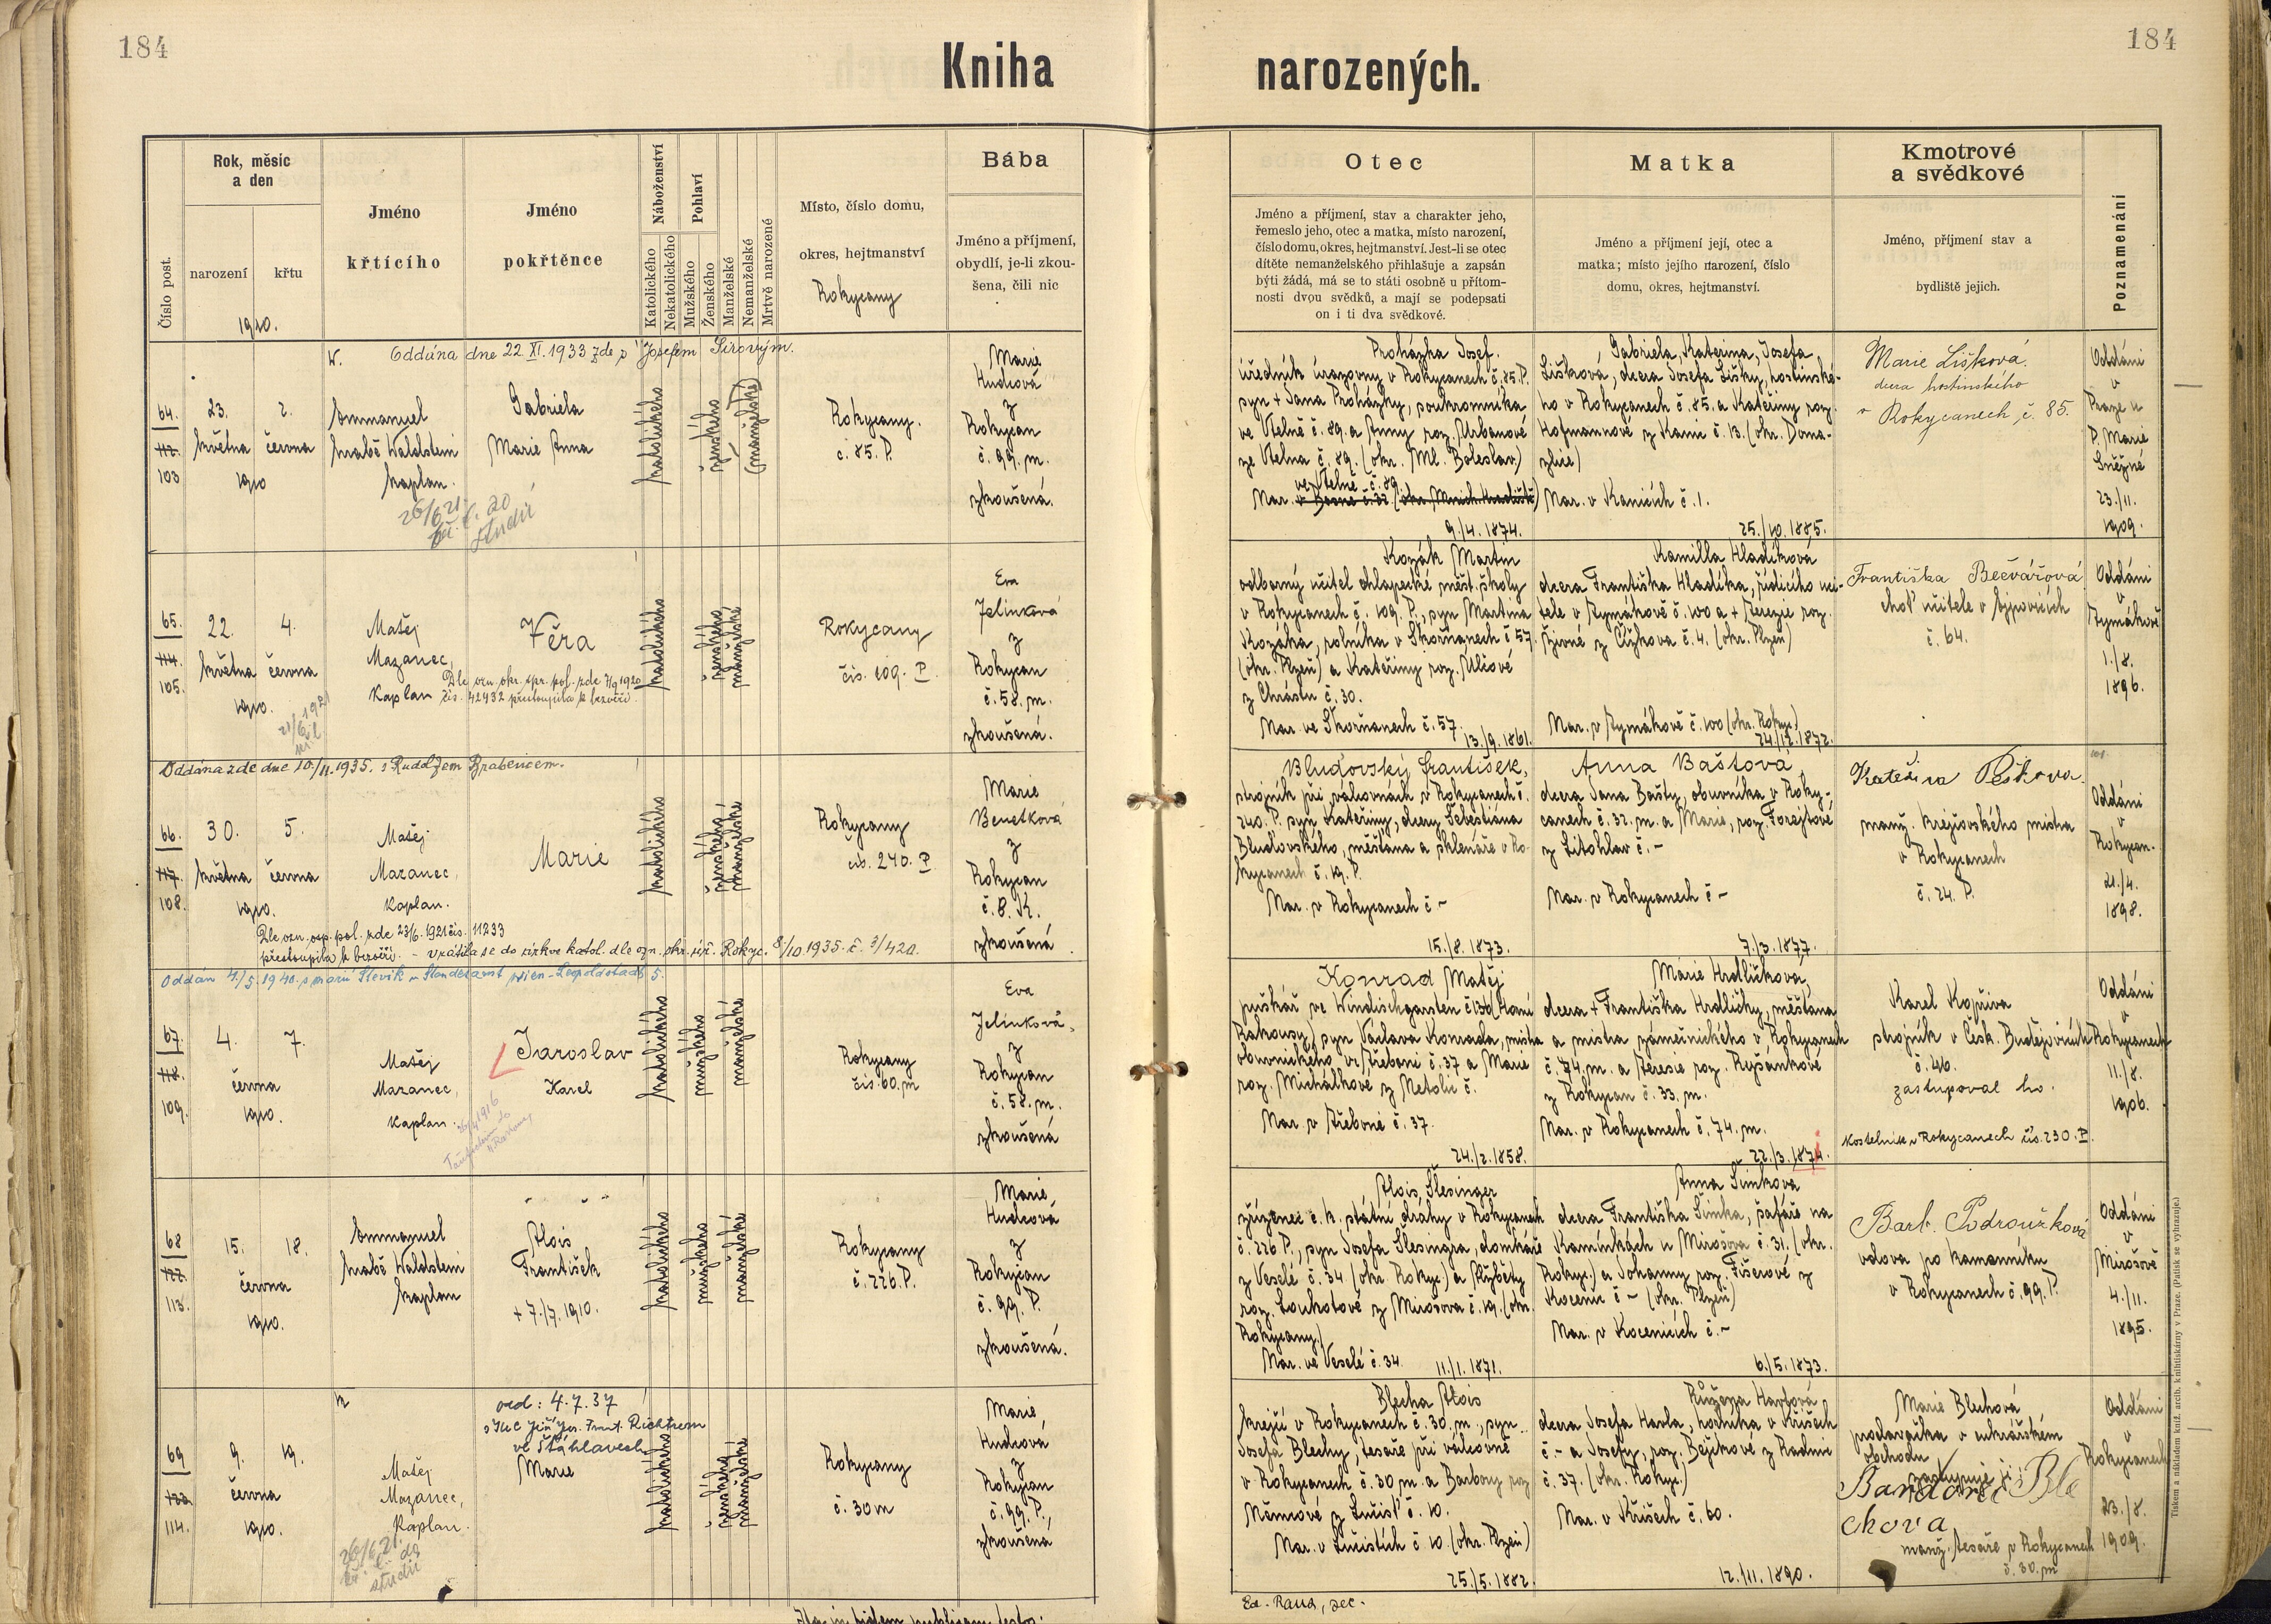 184
184
Kniha
narozených.
Číslo post.
Rok, měsíc
a den
narození
křtu
1910.
Jméno
křtícího
Jméno
pokřtěnce
Náboženství
Katolického
Nekatolického
Pohlaví
Mužského
Ženského
Manželské
Nemanželské
Mrtvě narozené
Místo, číslo domu,
okres, hejtmanství
Rokycany
Bába
Jméno a příjmení,
obydlí, je-li zkou-
šena, čili nic
Otec
Jméno a příjmení, stav a charakter jeho,
řemeslo jeho, otec a matka, místo narození,
číslo domu, okres, hejtmanství. Jest-li se otec
dítěte nemanželského přihlašuje a zapsán
býti žádá, má se to státi osobně u přítom-
nosti dvou svědků, a mají se podepsati
on i ti dva svědkové.
Matka
Jméno a příjmení její, otec a
matka; místo jejího narození, číslo
domu, okres, hejtmanství.
Kmotrové
a svědkové
Jméno, příjmení stav a
bydliště jejich.
Poznamenání
Oddána dne 22. XI. 1933 zde s Josefem Sirovým.
64.
112.
103
23.
května
1910
2.
června
Emmanuel
hrabě Waldstein
kaplan.
26/6 21
č. 20
studii
Gabriela
Marie Anna
katolického
ženského
(manželské)
Rokycany.
č. 85. P.
Marie
Hudcová
z
Rokycan
č. 99. m.
zkoušená.
Procházka Josef.
úředník úrazovny v Rokycanech č. 85. P.
syn + Jana Procházky, soukromníka
ve Vtelně č. 89. a Anny roz. Urbanové
ze Vtelna č. 89. (okr. Ml. Boleslav)
ve Vtelně č. 89
Nar. v Bosně č. 32 (okr. Mnich. Hradiště)
9./4. 1874.
Gabriela, Kateřina, Josefa
Lišková, dcera Josefa Lišky, hostinské-
ho v Rokycanech č. 85. a Kateřiny roz.
Hofmannové z Kanic č. 13. (okr. Doma-
žlice)
Nar. v Kanicích č. 1.
25./10. 1885.
Marie Lišková.
dcera hostinského
v Rokycanech, č. 85.
Oddáni
v
Praze u
P. Marie
Sněžné
23./11.
1909.
65.
114.
105.
22.
května
1910.
4.
června
21/6 1921
Matěj
Mazanec,
Kaplan
Věra
Dle ozn. okr. spr. pol. zde 7/9 1920
čís. 42432 přestoupila k bezvěří.
katolického
ženského
manželské
Rokycany
čís. 109. P.
Eva
Jelínková
z
Rokycan
č. 58. m.
zkoušená.
Kozák Martin
odborný učitel chlapecké měšt. školy
v Rokycanech č. 109. P., syn Martina
Kozáka, rolníka v Skořňanech č 57.
(okr. Plzeň) a Kateřiny roz. Ulčové
z Chrástu č. 30.
Nar. ve Skořňanech č. 57.
13./9. 1861.
Kamilla Hladíková
dcera Františka Hladíka, řídícího uči-
tele v Dýmákově č. 100 a + Terezie roz.
Živné z Čížkova č. 4. (okr. Plzeň)
Nar. v Dýmákově č. 100 (okr. Rokyc.)
24./12. 1872.
Františka Bečvářová
choť učitele v Ejpovicích
č. 64.
Oddáni
v
Dýmákově
1./8.
1896.
Oddána zde dne 10./11. 1935. s Rudolfem Brabencem.
66.
117.
108.
30.
května
1910.
5.
června
Matěj
Mazanec,
Kaplan.
Marie
Dle ozn. osp. pol. zde 23/6. 1921 čís. 11233
přestoupila k bezvěří. - vrátila se do církve katol. dle ozn. okr. úř. Rokyc. 8/10 1935. č. 3/420.
katolického
ženského
manželské
Rokycany
čís. 240. P
Marie
Benetková
z
Rokycan
č. 8. K.
zkoušená
Bludovský František,
strojník při válcovnách v Rokycanech č.
240. P. syn Kateřiny, dcery Šebestiána
Bludovského, měšťana a sklenáře v Ro-
kycanech č. 19. P.
Nar. v Rokycanech č -
15./8. 1873.
Anna Baštová
dcera Jana Bašty, obuvníka v Roky-
canech č. 32. m. a Marie, roz. Forejtové
z Litohlav č. -
Nar. v Rokycanech č -
7./3. 1877.
Kateřina Pešková
manž. krejčovského mistra
v Rokycanech
č. 24. P.
Oddáni
v
Rokycan.
21./4.
1898.
Oddán 4/5. 1940. s Marií Slevik u Standesamt Wien-Leopoldstadt 5.
67.
118.
109.
4.
června
1910.
7.
Matěj
Mazanec,
Kaplan.
Jaroslav
Karel
katolického
mužského
manželské
Rokycany
čís. 60. m
Eva
Jelínková,
z
Rokycan
č. 58. m.
zkoušená
Konrad Matěj
puškář ve Windischgarsten č 136 (Horní
Rakousy) syn Václava Konrada, mistra
obuvnického ve Třeboni č. 37 a Marie
roz. Michálkové z Netolic č.
Nar. v Třeboni č. 37.
24./2. 1858.
Marie Hrdličková,
dcera + Františka Hrdličky, měšťana
a mistra zámečnického v Rokycanech
č. 74. m. a Terezie roz. Ryšánkové
z Rokycan č. 33. m.
Nar. v Rokycanech č. 74. m.
22./3. 1874.
Karel Kopřiva
strojník v Česk. Budějovicích
č. 46.
zastupoval ho.
kostelník v Rokycanech čís. 230. P.
Oddáni
v
Rokycanech
11./8.
1906.
68
122.
113.
15.
června
1910.
18.
Emmanuel
hrabě Waldstein
kaplan
Alois
František
+ 7./7. 1910.
katolického
mužského
manželské
Rokycany
č. 226. P.
Marie
Hudcová
z
Rokycan
č. 99. P.
zkoušená.
Alois Šlesinger
zřízenec c. k. státní dráhy v Rokycanech
č. 226 P., syn Josefa Šlesingra, domkáře
z Veselé č. 34 (okr. Rokyc.) a Alžběty
roz. Loukotové z Mirošova č. 19. (okr.
Rokycany.)
Nar. ve Veselé č. 34.
11./1. 1871.
Anna Šimková
dcera Františka Šimka, šafáře na
Kamínkách u Mirošova č. 31. (okr.
Rokyc.) a Johanny roz. Fišerové z
Kocenic č - (okr. Plzeň)
Nar. v Kocenicích č. -
6./5. 1873.
Barb. Podroužková
vdova po kameníku
v Rokycanech č. 99. P.
Oddáni
v
Mirošově
4./11.
1895.
69
123.
114.
9.
června
1910.
19.
Matěj
Mazanec,
Kaplan.
26/6 21.
studii
odd: 4.7.37
Richtrem
ve Šťáhlavech
Marie
katolického
ženského
manželské
Rokycany
č. 30 m
Marie
Hudcová
z
Rokycan
č. 99. P.,
zkoušená
Blecha Alois
krejčí v Rokycanech č. 30. m., syn
Josefa Blechy, tesaře při válcovně
v Rokycanech č. 30 m. a Barbory roz
Němcové z Lučišť č. 10.
Nar. v Lučištích č 10. (okr. Plzeň)
25./5. 1882.
Růžena Havlová
dcera Josefa Havla, horníka v Křiších
č. - a Josefy, roz. Bejčkové z Radnic
č. 37. (okr. Rokyc.)
Nar. v Křiších č. 60.
12./11. 1890.
Marie Blechová
prodavačka v cukrářském
obchodu
zastupuje ji:
Barbora Ble
chova
manž. tesaře v Rokycanech
č. 30. m
Oddáni
v
Rokycanech
23./8.
1909.
Ed. Rand, sec.
Tiskem a nákladem kníž. arcib. knihtiskárny v Praze. (Patisk se vyhrazuje.)